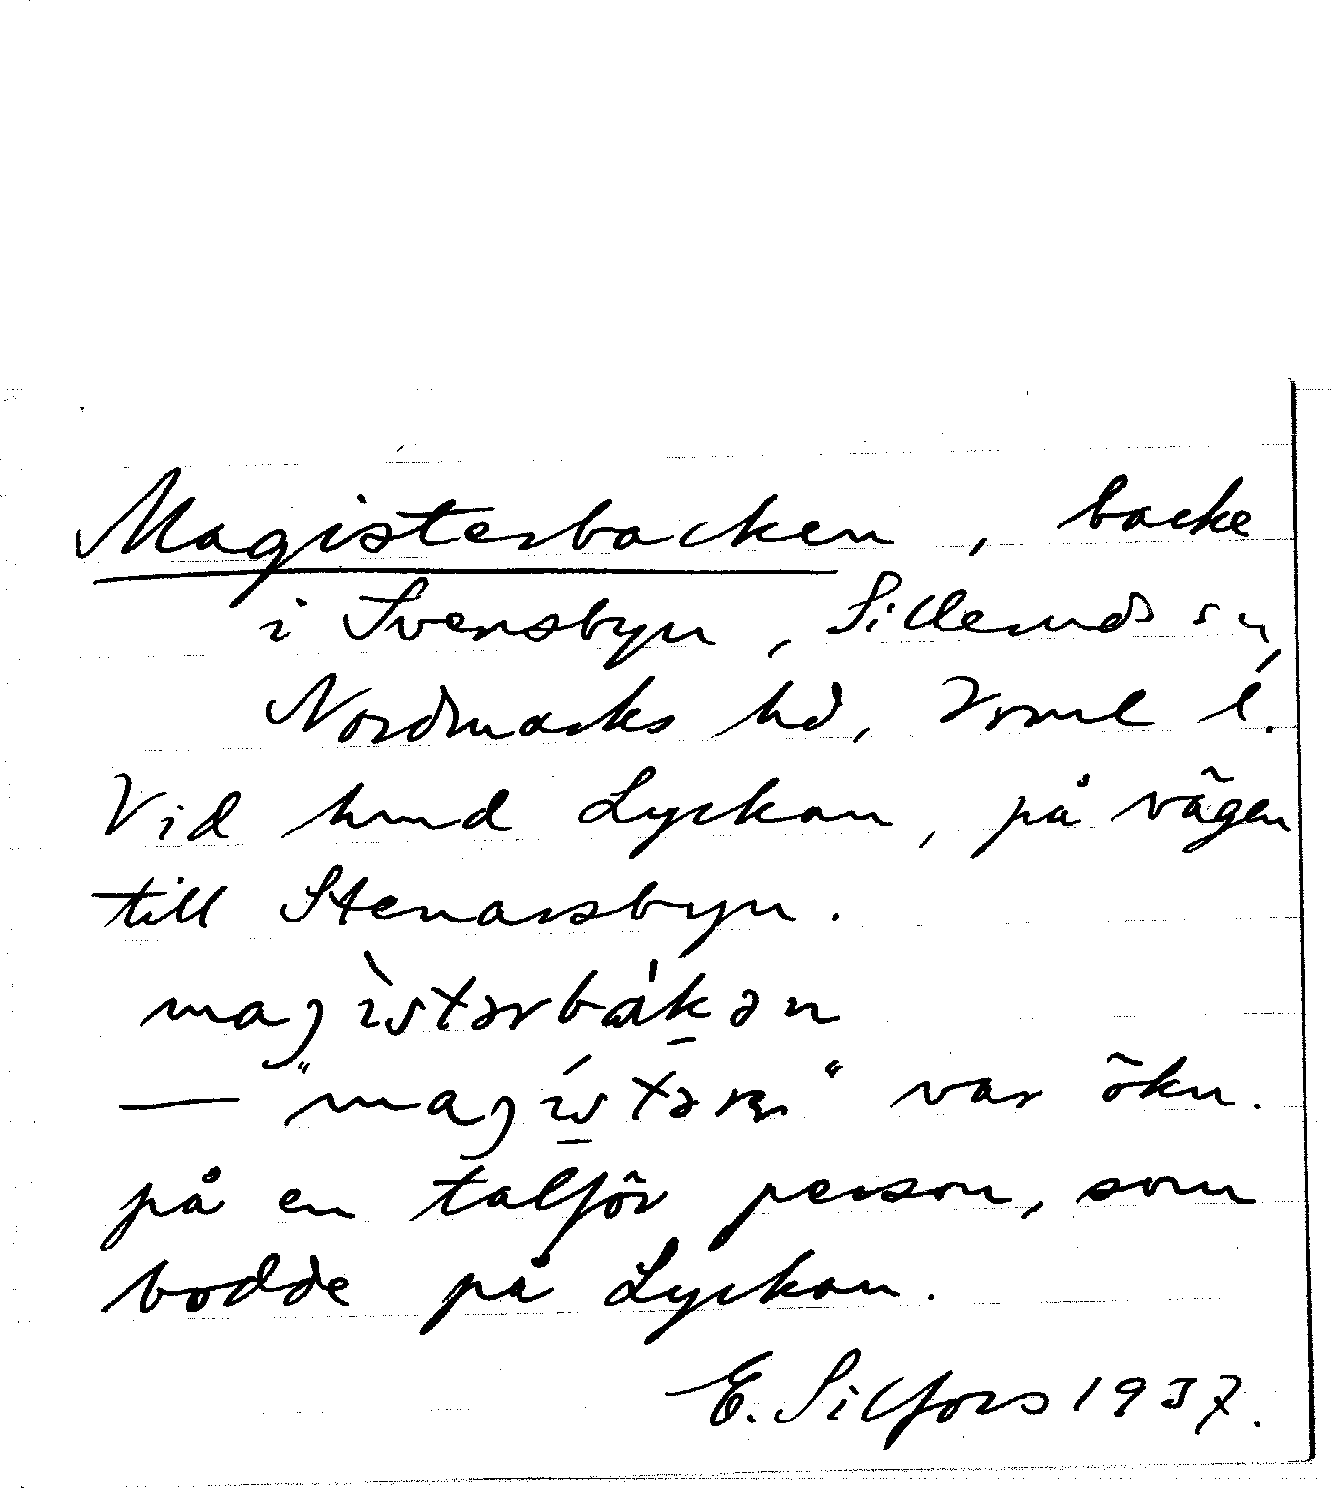 Magisterbacken, backe
i Svensbyn, Sillerud s n,
Nordmarks hd, Vrml l.
Vid hmd Lyckan, på vägen
till Stenarsbyn.
magìstərbákən
— "magístərn" var ökn.
på en talför person, som
bodde på Lyckan.
E. Silfors 1937.